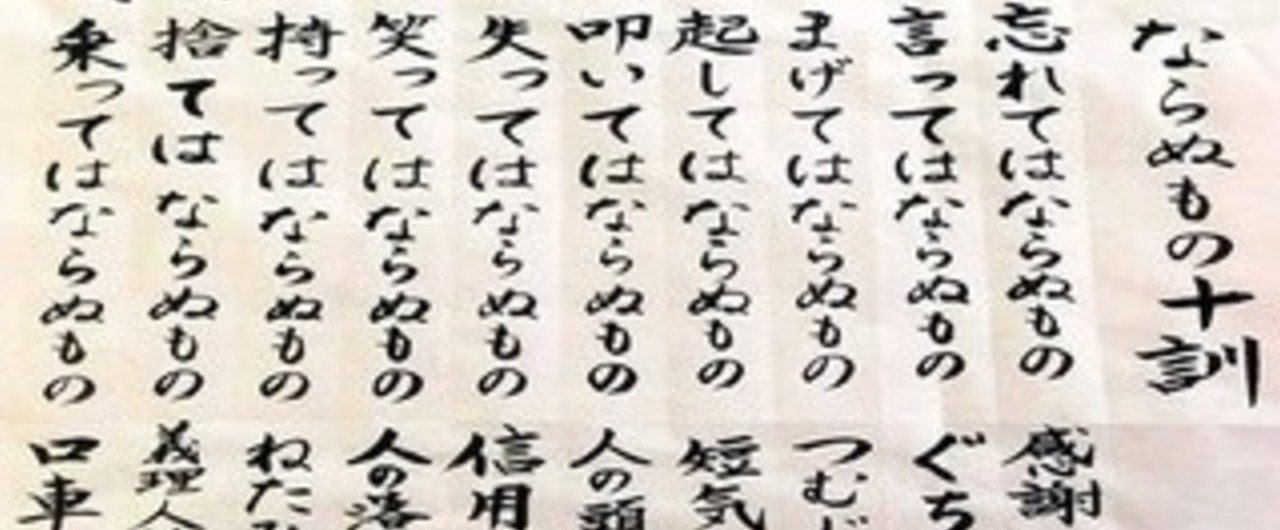 ならぬもの十訓
忘れてはならぬもの 感謝
言ってはならぬもの ぐち
まげてはならぬもの つむじ
起してはならぬもの 短気
叩いてはならぬもの 人の頭
失ってはならぬもの 信用
笑ってはならぬもの 人の落
持ってはならぬもの ねたみ
捨てはならぬもの 義理人
乗ってはならぬもの 口車